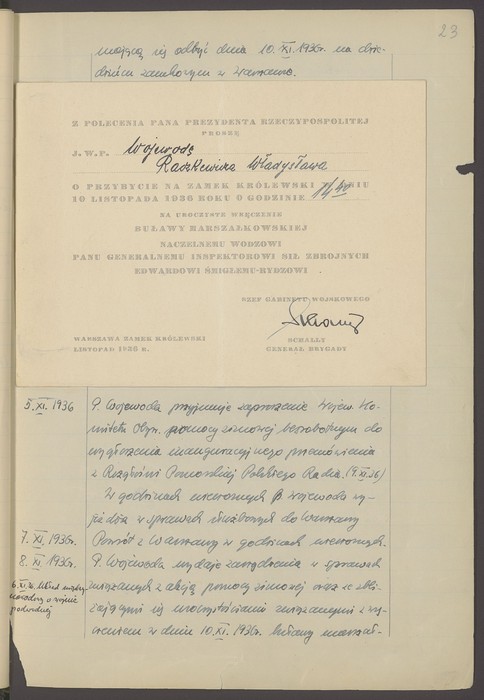 23
mającą się odbyć dnia 10.XI.1936r. na dzie-
dzińcu zamkowym w Warszawie.
Z POLECENIA PANA PREZYDENTA RZECZYPOSPOLITEJ
PROSZĘ
J.W.P. Wojewodę
Raczkiewicza Władysława
O PRZYBYCIE NA ZAMEK KRÓLEWSKI W DNIU
10 LISTOPADA 1936 ROKU O GODZINIE 14
ZA UROCZYSTE WRĘCZENIE
BUŁAWY MARSZAŁKOWSKIEJ
NACZELNEMU WODZOWI
PANU GENERALNEMU INSPEKTOROWI SIŁ ZBROJNYCH
EDWARDOWI ŚMIGŁEMU-RYDZOWI
SZEF GABINETU WOJSKOWEGO
WARSZAWA ZAMEK KRÓLEWSKI
LISTOPAD 1936 R.
SCHALLY
GENERAŁ BRYGADY
5.XI.1936 P. Wojewoda przyjmuje zaproszenie Wojew. Ko-
mitetu Obyw. pomocy zimowej bezrobotnym do
wygłoszenia inauguracyjnego przemówienia
z Rozgłośni Pomorskiej Polskiego Radia. (9.XI.36)
W godzinach wieczornych P. Wojewoda wy-
jeżdża w sprawach służbowych do Warszawy
7.XI.1936r. Powrót z Warszawy w godzinach wieczornych.
8.XI.1936r. P. Wojewoda wydaje zarządzenia w sprawach
6.XI.36 układ między-
narodowy o wojnie
podwodnej
związanych z akcją pomocy zimowej oraz ze zbli-
żającymi się uroczystościami związanymi z wrę-
czeniem w dniu 10.XI.1936r. buławy marszał-